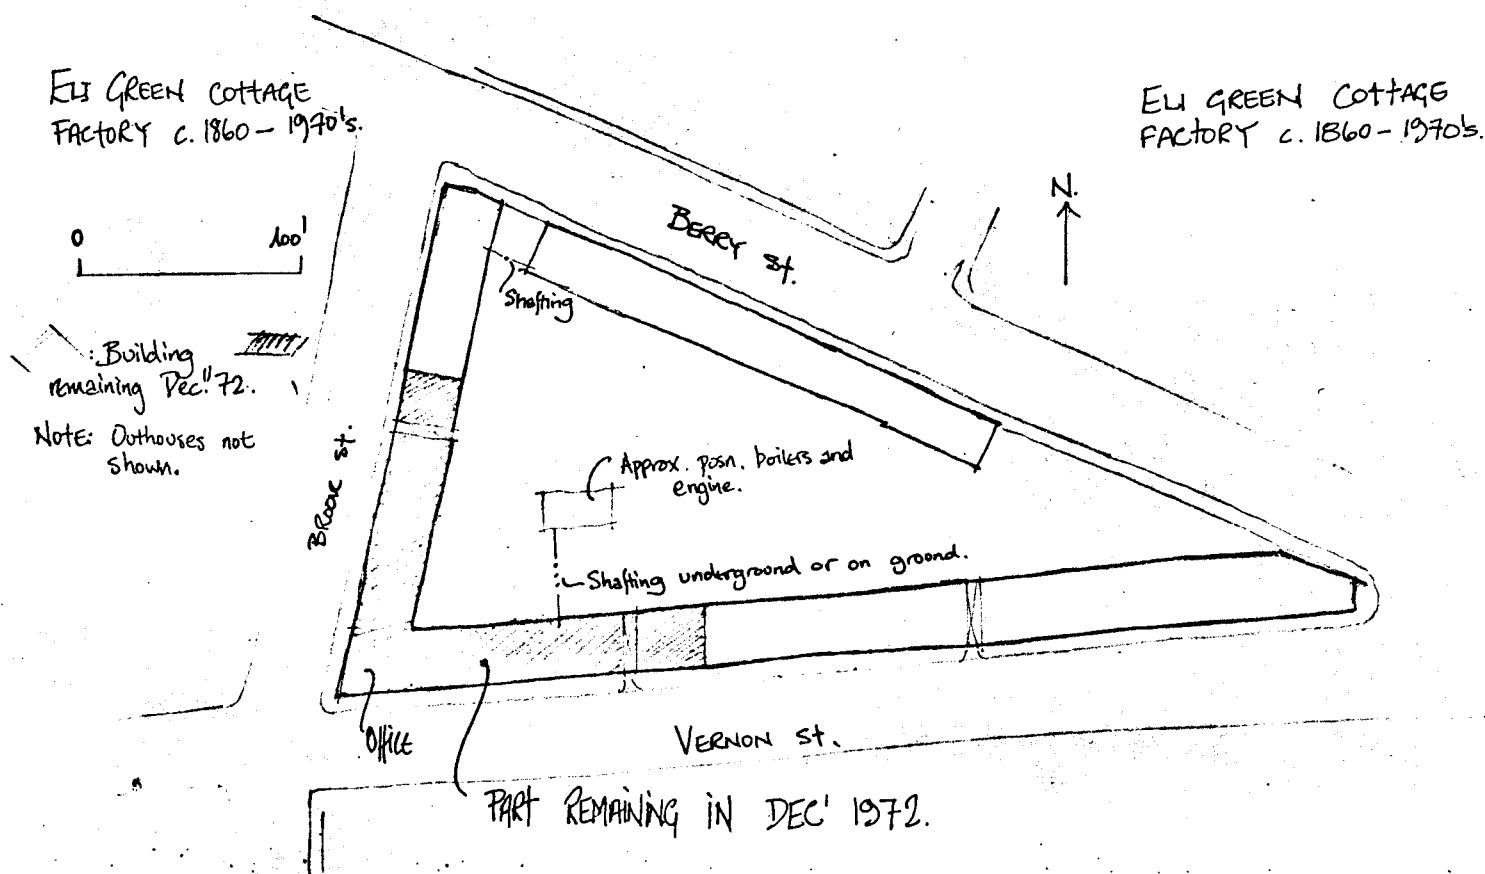 ELI GREEN COTTAGE
FACTORY c. 1860 – 1970's.
ELI GREEN COTTAGE
FACTORY c. 1860 – 1970's.
N.
0 100'
BERRY St.
Shafting
: Building
remaining Dec." 72.
NOTE: Outhouses not
shown.
BROOK St.
Approx. posn. boilers and
engine.
Shafting underground or on ground.
Office
VERNON St.
PART REMAINING IN DEC' 1972.